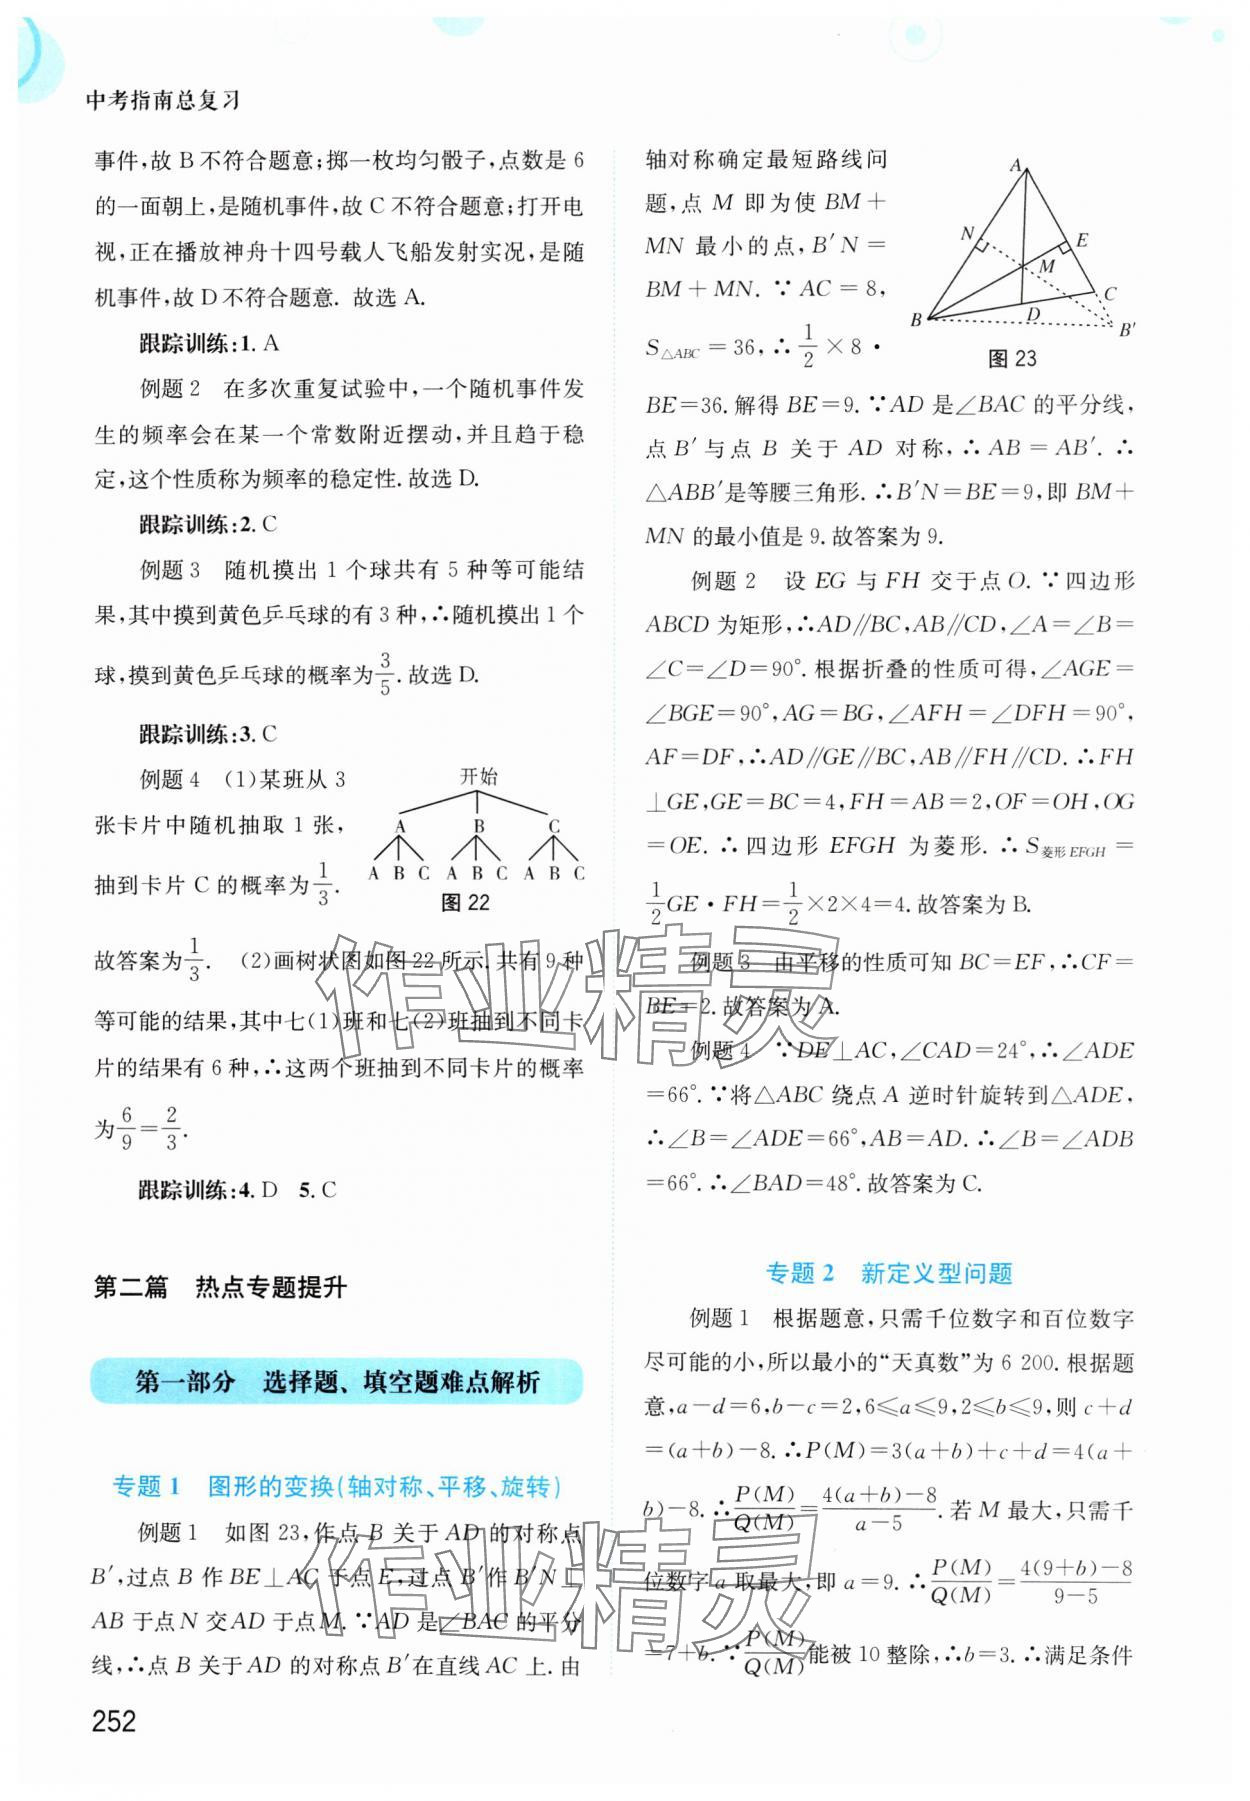 中考指南总复习
事件,故 B 不符合题意;掷一枚均匀骰子,点数是 6
的一面朝上,是随机事件,故 C 不符合题意;打开电
视,正在播放神舟十四号载人飞船发射实况,是随
机事件,故 D 不符合题意. 故选 A.
跟踪训练:1. A
例题 2 在多次重复试验中,一个随机事件发
生的频率会在某一个常数附近摆动,并且趋于稳
定,这个性质称为频率的稳定性.故选 D.
跟踪训练:2. C
例题 3 随机摸出 1 个球共有 5 种等可能结
果,其中摸到黄色乒乓球的有 3 种,∴随机摸出 1 个
球,摸到黄色乒乓球的概率为3/5.故选 D.
跟踪训练:3. C
例题 4 (1)某班从 3
张卡片中随机抽取 1 张,
抽到卡片 C 的概率为1/3.
开始
A B C
A B C A B C A B C
图 22
故答案为1/3. (2)画树状图如图 22 所示.共有 9 种
等可能的结果,其中七(1)班和七(2)班抽到不同卡
片的结果有 6 种,∴这两个班抽到不同卡片的概率
为6/9=2/3.
跟踪训练:4. D 5. C
第二篇 热点专题提升
第一部分 选择题、填空题难点解析
专题 1 图形的变换(轴对称、平移、旋转)
例题 1 如图 23,作点 B 关于 AD 的对称点
B′,过点 B 作 BE⊥AC 于点 E,过点 B′作 B′N⊥
AB 于点 N 交 AD 于点 M.∵AD 是∠BAC 的平分
线,∴点 B 关于 AD 的对称点 B′在直线 AC 上.由
252
轴对称确定最短路线问
题,点 M 即为使 BM+
MN 最小的点,B′N=
BM+MN.∵AC=8,
S△ABC=36,∴1/2×8·
A
N
E
M
C
B
D
B′
图 23
BE=36.解得 BE=9.∵AD 是∠BAC 的平分线,
点 B′与点 B 关于 AD 对称,∴AB=AB′.∴
△ABB′是等腰三角形.∴B′N=BE=9,即 BM+
MN 的最小值是 9.故答案为 9.
例题 2 设 EG 与 FH 交于点 O.∵四边形
ABCD 为矩形,∴AD∥BC,AB∥CD,∠A=∠B=
∠C=∠D=90°.根据折叠的性质可得,∠AGE=
∠BGE=90°,AG=BG,∠AFH=∠DFH=90°,
AF=DF,∴AD∥GE∥BC,AB∥FH∥CD.∴FH
⊥GE,GE=BC=4,FH=AB=2,OF=OH,OG
=OE.∴四边形 EFGH 为菱形.∴S菱形EFGH=
1/2GE·FH=1/2×2×4=4.故答案为 B.
例题 3 由平移的性质可知 BC=EF,∴CF=
BE=2.故答案为 A.
例题 4 ∵DE⊥AC,∠CAD=24°,∴∠ADE
=66°.∵将△ABC 绕点 A 逆时针旋转到△ADE,
∴∠B=∠ADE=66°,AB=AD.∴∠B=∠ADB
=66°.∴∠BAD=48°.故答案为 C.
专题 2 新定义型问题
例题 1 根据题意,只需千位数字和百位数字
尽可能的小,所以最小的“天真数”为 6 200.根据题
意,a-d=6,b-c=2,6≤a≤9,2≤b≤9,则 c+d
=(a+b)-8.∴P(M)=3(a+b)+c+d=4(a+
b)-8.∴P(M)/Q(M)=4(a+b)-8/a-5.若 M 最大,只需千
位数字 a 取最大,即 a=9.∴P(M)/Q(M)=4(9+b)-8/9-5
=7+b.∵P(M)/Q(M)能被 10 整除,∴b=3.∴满足条件
作业精灵
作业精灵